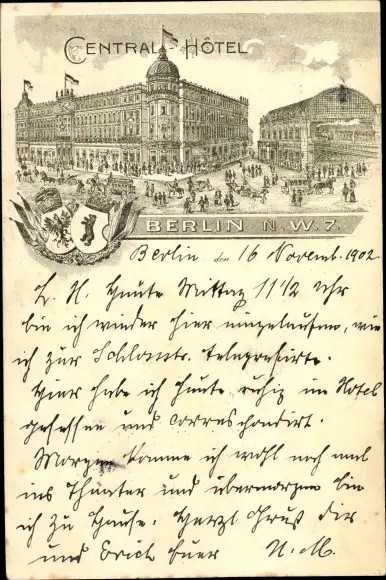 CENTRAL-HÔTEL
BERLIN N.W.7.
Berlin den 16 Novemb. 1902
L. H. Heute Mittag 11 1/2 Uhr
bin ich wieder hier eingelaufen, wie
ich zur Schlossstr. telegrafirte.
Hier habe ich heute ruhig im Hotel
gesessen und correspondirt.
Morgen komme ich wohl noch mal
ins Theater und übermorgen bin
ich zu Hause. Herzl Gruß Dir
und Erich Euer H. M.